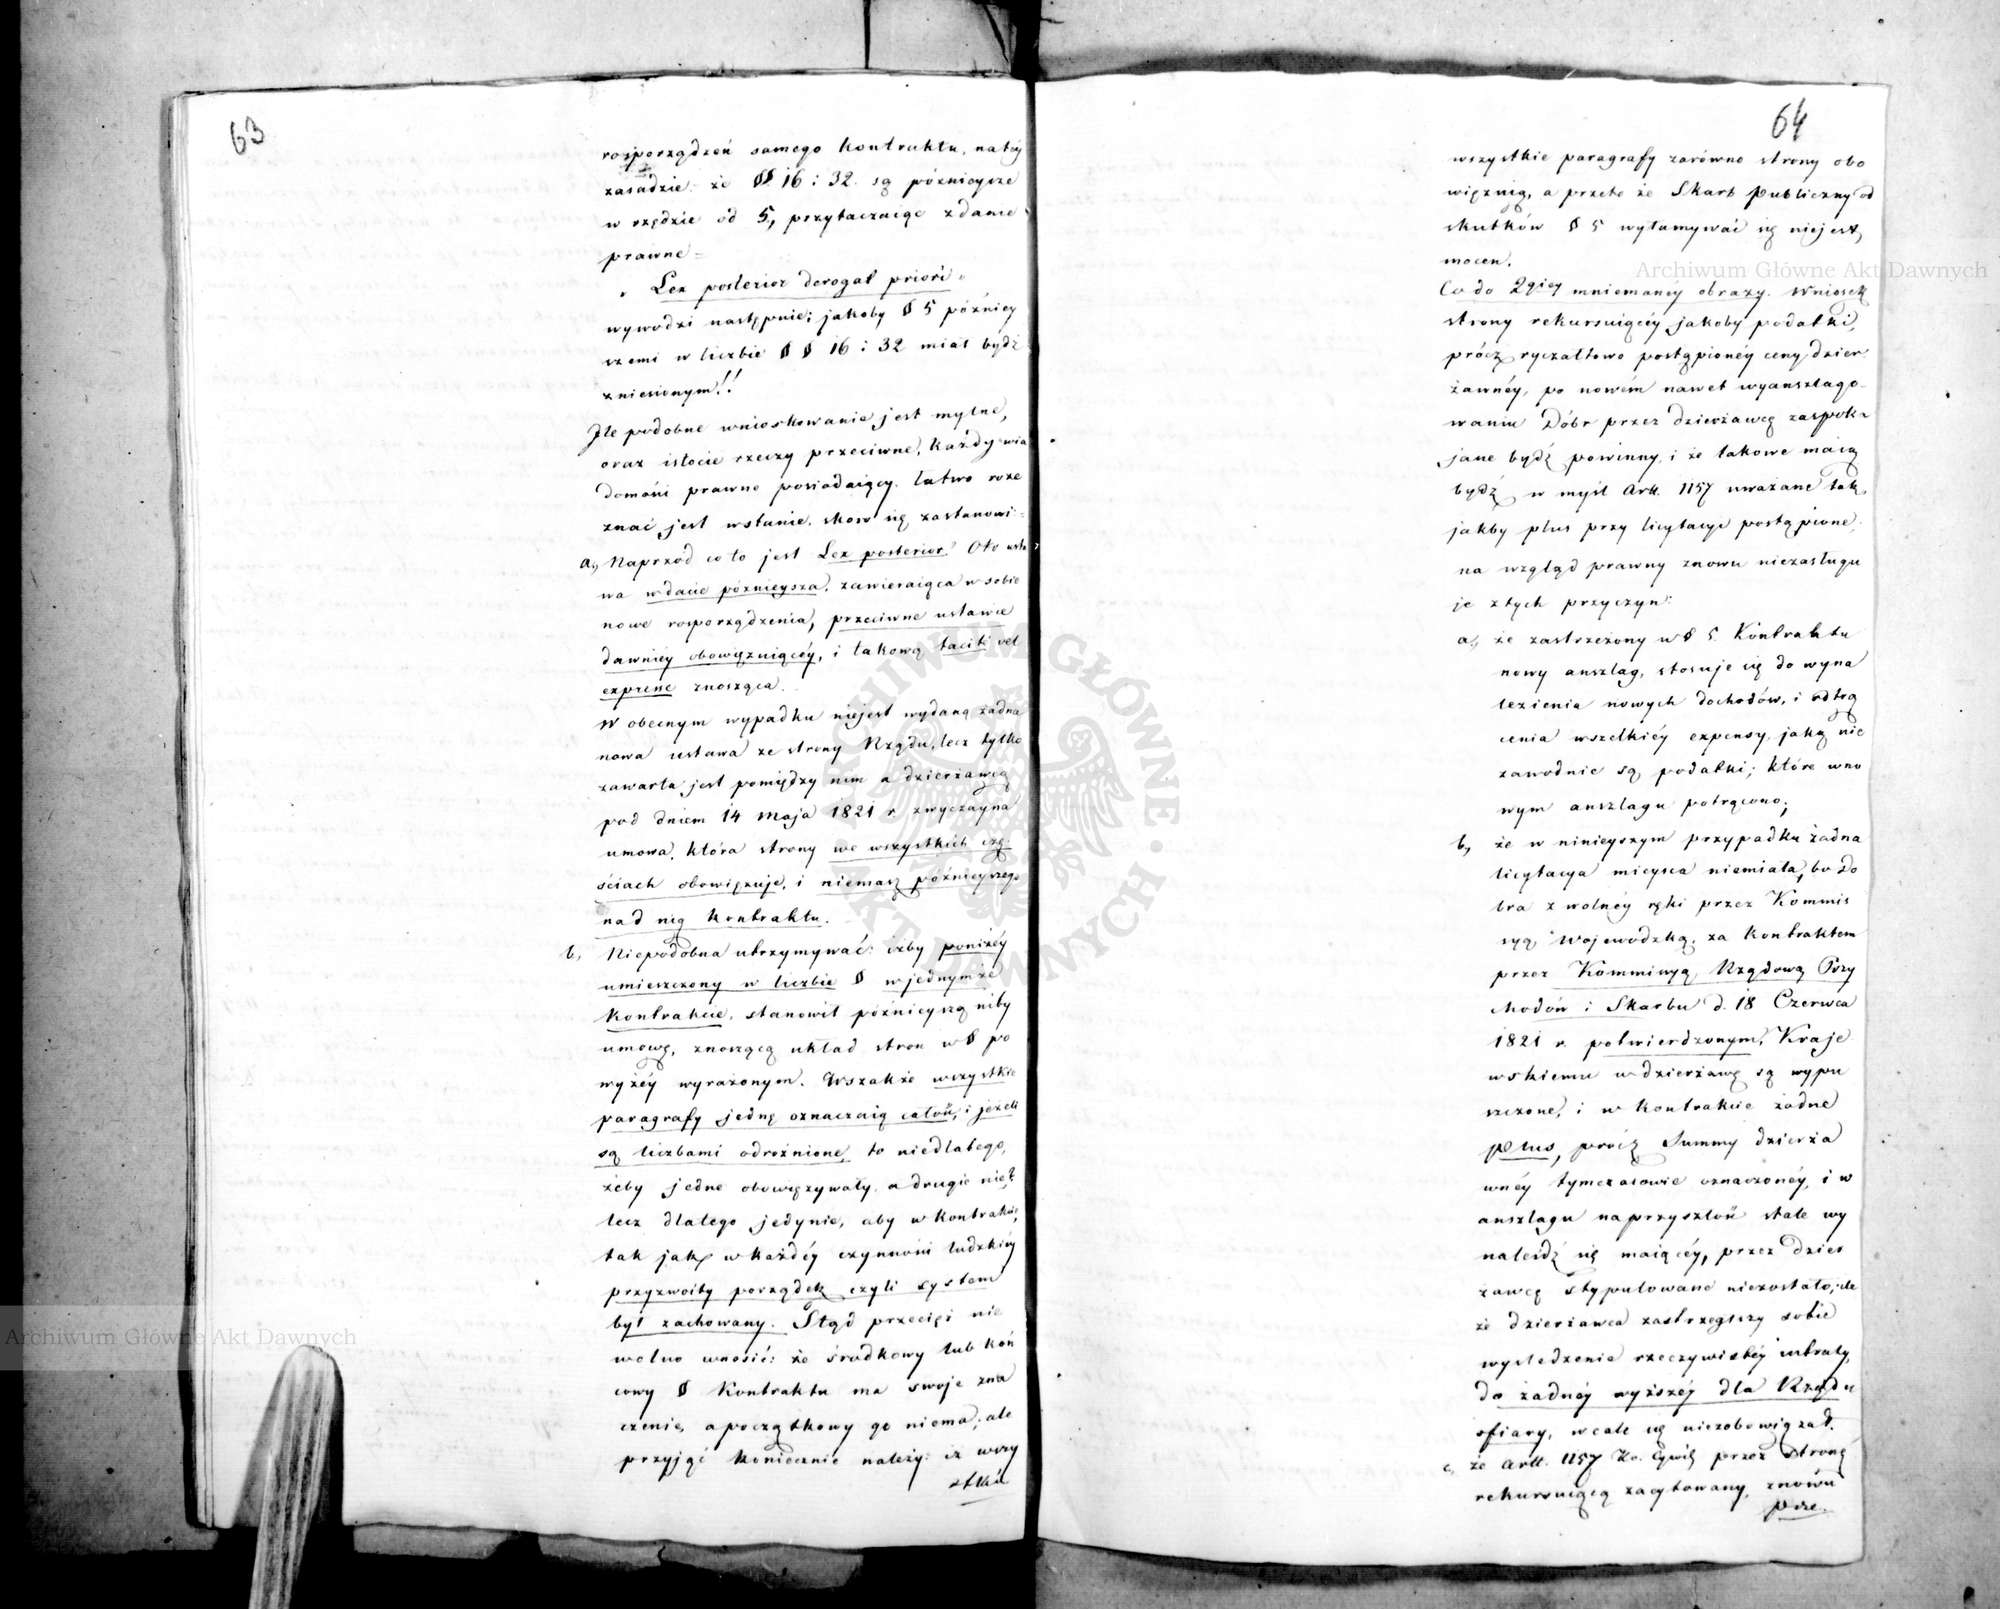 63
rosporządzeń samego kontraktu, na téy
zasadzie: że §§ 16 i 32. są pózniejsze
w rzędzie od 5, przytaczaiąc zdanie
prawne =
„ Lex posterior derogat priori „
wywodzi następnie; jakoby § 5 późniey
szemi w liczbie § § 16 i 32 miał bydź
zniesionym!!
Ile podobne wnioskowanie jest mylne,
oraz istocie rzeczy przeciwne, każdy wia
domości prawne posiadaiący łatwo roze
znać jest wstanie, skoro się zastanowi:
a, Naprzód co to jest Lex posterior? Oto usta
wa w dacie póznieysza, zawieraiąca w sobie
nowe rosporządzenia, przeciwne ustawie
dawniéy obowięzuiącéy, i takową tacite vel
expresse znosząca.
W obecnym wypadku niejest wydaną żadna
nowa ustawa ze strony Rządu, lecz tylko
zawarta jest pomiędzy nim a dzierżawcą
pod dniem 14 Maja 1821 r. zwyczayna
umowa, która strony we wszystkich czę
ściach obowięzuje, i niemasz późnieyszego
nad nią kontraktu.
b, Niepodobna utrzymywać: iżby poniżéy
umieszczony w liczbie § w jednymże
kontrakcie, stanowił późnieyszą niby
umowę, znoszącą układ stron w § po
wyżéy wyrażonym. Wszakże wszystkie
paragrafy jednę oznaczaią całość, i jeżeli
są liczbami odróżnione, to niedlatego,
żeby jedne obowięzywały, a drugie nie,
lecz dlatego jedynie, aby w kontrakcie,
tak jak w każdéy czynności ludzkiéy
przyzwoity porządek czyli system
był zachowany. Stąd przecięż nie
wolno wnosić: że środkowy lub koń
cowy § Kontraktu ma swoje zna
czenie, a początkowy go niema; ale
przyjąć koniecznie należy: iż wszy
stkie
64
wszystkie paragrafy zarówno strony obo
więzuią, a przeto że Skarb Publiczny od
skutków § 5 wyłamywać się niejest
mocen.
Co do 2giey mniemanéy obrazy. Wniosek
strony rekursuiącéy jakoby podatki,
prócz ryczałtowo postąpionéy ceny dzier
żawnéy, po nowém nawet wyanszlago-
waniu Dóbr przez dzierżawcę zaspoka
jane bydź powinny, i że takowe maią
bydź w myśl Art. 1157 uważane tak,
jakby plus przy licytacyi postąpione,
na wzgląd prawny znowu niezasługu
je z tych przyczyn:
a, że zastrzeżony w § 5. Kontraktu
nowy anszlag, stosuje się do wyna
lezienia nowych dochodów, i odtrą
cenia wszelkiéy expensy, jaką nie
zawodnie są podatki; które w no
wym anszlagu potrącono;
b, że w ninieyszym przypadku żadna
licytacya mieysca niemiała, bo Do
bra z wolnéy ręki przez Kommis
syą Wojewodzką, za kontraktem
przez Kommissyą Rządową Przy
chodów i Skarbu d. 18 Czerwca
1821 r. potwierdzonym, Kraje
wskiemu w dzierżawę są wypu
szczone, i w kontrakcie żadne
plus, prócz Summy dzierża
wnéy tymczasowie oznaczonéy, i w
anszlagu naprzyszłość stale wy
naleźdź się maiącéy, przez dzier
żawcę stypulowane niezostało; ile
że dzierżawca zastrzegłszy sobie
wyśledzenie rzeczywistéy intraty,
do żadnéy wyższéy dla Rządu
ofiary, wcale się niezobowiązał.
c, że Artt. 1157 Ko. Cywil. przez stronę
rekursuiącą zacytowany, znowu
prze.
Archiwum Główne Akt Dawnych
Archiwum Główne Akt Dawnych
ARCHIWUM GŁÓWNE AKT DAWNYCH